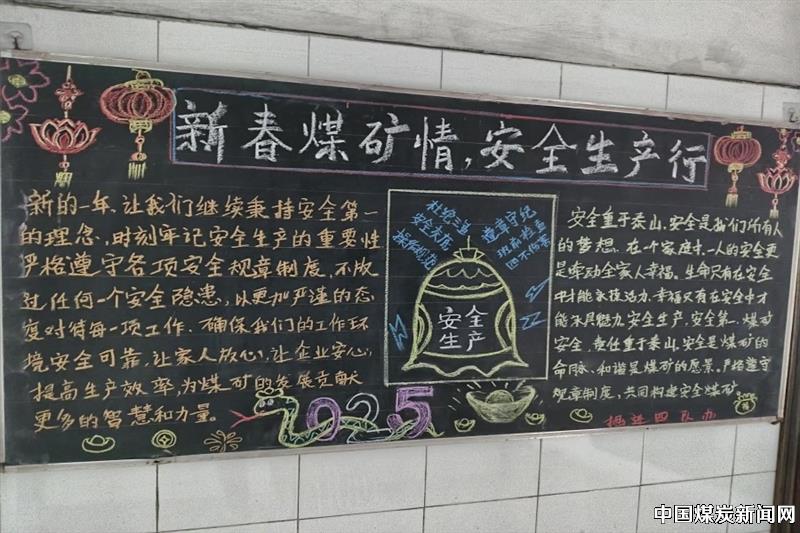 新春煤矿情，安全生产行
新的一年，让我们继续秉持安全第一
的理念，时刻牢记安全生产的重要性
严格遵守各项安全规章制度，不放
过任何一个安全隐患，从更加严谨的态
度对待每一项工作，确保我们的工作环
境安全可靠，让家人放心，让企业安心；
提高生产效率，为煤矿的发展贡献
更多的智慧和力量。
杜绝三违
安全太度
操作规范
遵章守纪
班前检查
四不伤害
安全
生产
2025
安全重于泰山，安全是我们所有人
的梦想，在一个家庭中，一人的安全更
是牵动全家人幸福。生命只有在安全
中才能永技活力，幸福只有在安全中才
能永具魅力，安全生产，安全第一，煤矿
安全，责任重于泰山，安全是煤矿的
命同脉、和谐是煤矿的愿景。严格遵守
规章制度，共同构建安全煤矿
掘进四队办
中国煤炭新闻网